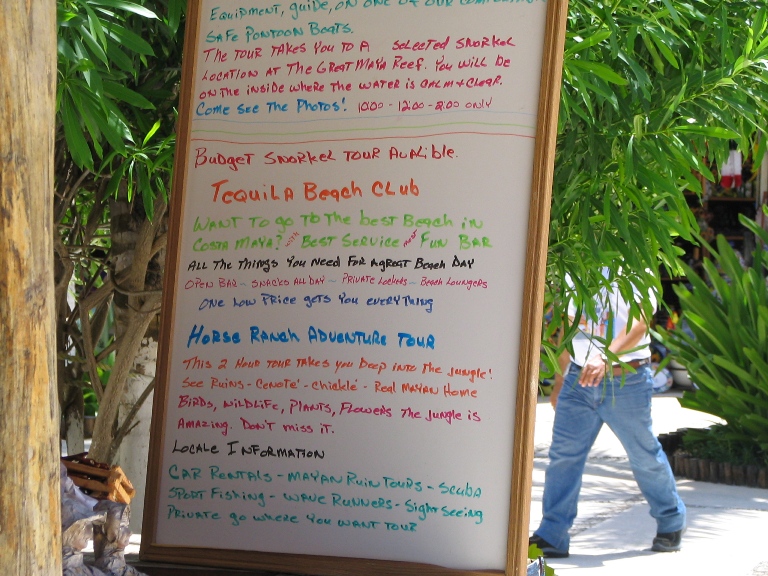 EQUIPMENT, GUIDE, ON ONE OF OUR
SAFE PONTOON BOATS.
THE TOUR TAKES YOU TO A SELECTED SNORKEL
LOCATION AT THE GREAT MAYA REEF. YOU WILL BE
ON THE INSIDE WHERE THE WATER IS CALM + CLEAR.
COME SEE THE PHOTOS! 10:00 - 12:00 - 2:00 ONLY
BUDGET SNORKEL TOUR AVALIBLE.
TEQUILA BEACH CLUB
WANT TO GO TO THE BEST BEACH IN
COSTA MAYA? BEST SERVICE FUN BAR
ALL THE THINGS YOU NEED FOR A GREAT BEACH DAY
OPEN BAR - SNACKS ALL DAY - PRIVATE LOCKERS - BEACH LOUNGERS
ONE LOW PRICE GETS YOU EVERYTHING
HORSE RANCH ADVENTURE TOUR
THIS 2 HOUR TOUR TAKES YOU DEEP INTO THE JUNGLE!
SEE RUINS - CENOTE' - CHICKLE' - REAL MAYAN HOME
BIRDS, WILDLIFE, PLANTS, FLOWERS THE JUNGLE IS
AMAZING. DON'T MISS IT.
LOCALE INFORMATION
CAR RENTALS - MAYAN RUIN TOURS - SCUBA
SPORT FISHING - WAVE RUNNERS - SIGHT SEEING
PRIVATE GO WHERE YOU WANT TOUR